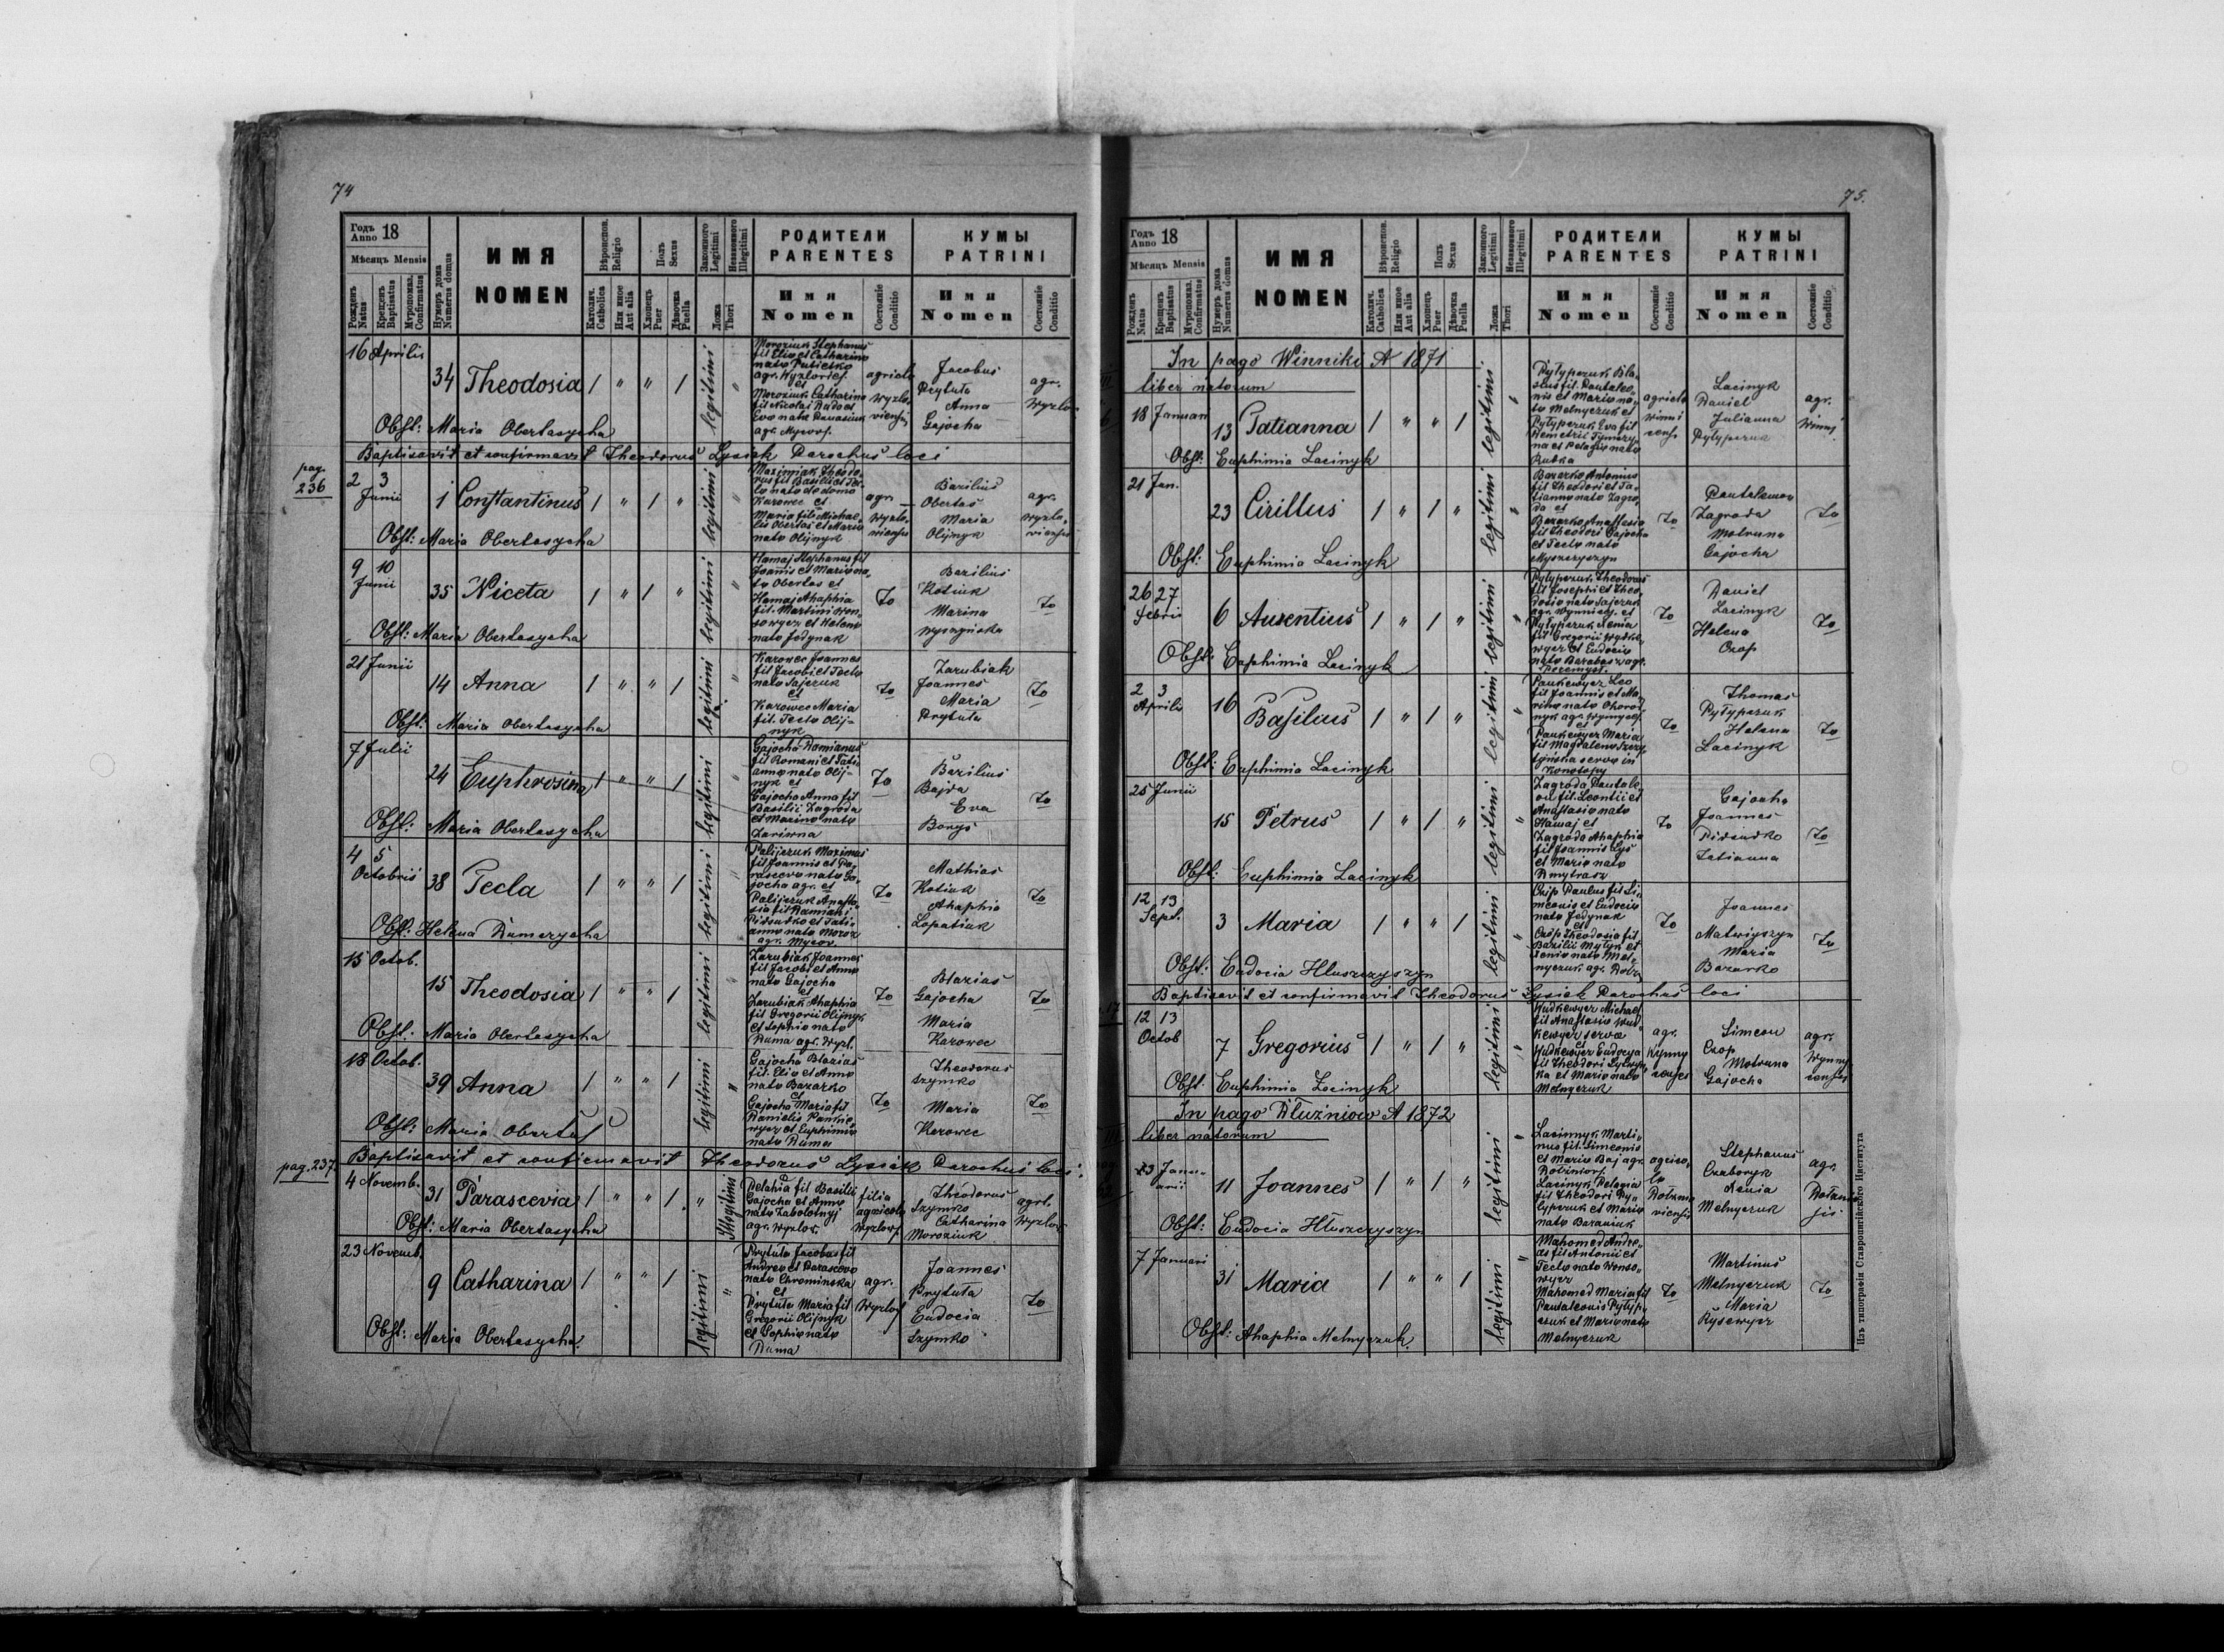 74
Годъ Anno 18
Мѣсяцъ Mensis
Рожденъ Natus
Крещенъ Baptisatus
Муропомаз. Confirmatus
Нумеръ дома Numerus domus
ИМЯ
NOMEN
Вѣроиспов. Religio
Католич. Catholica
Или иное Aut alia
Полъ Sexus
Хлопецъ Puer
Дѣвочка Puella
Законного Legitimi
Незаконного Illegitimi
Ложа Thori
РОДИТЕЛИ
PARENTES
Имя Nomen
Состояніе Conditio
КУМЫ
PATRINI
Имя Nomen
Состояніе Conditio
16 Aprilis
34 Theodosia / " " / legitimi "
Moroziuk Stephanus
fil Eliæ et Catharina
agr. Wyzlovies.
et
Moroziuk Catharina
fil Nicolai Ruda et
agricola
Jacobus
Prytuła
Anna
Gajocha
agr.
Obst: Maria Obertasycha
Baptisavit et confirmavit Theodorus Lysiak Parochus loci
pag. 236
2 3
Junii
1 Constantinus / " / " legitimi "
Maximiak Theodo-
rus fil Basilii et Tec-
la nata de domo
Karowec et
Maria fil: Michae-
lis Obertas et Maria
nata Olijnyk
agr.
Basilius
Obertas
Maria
Olijnyk
agr.
Obst: Maria Obertasycha
9 10
Junii
35 Niceta / " / " legitimi "
Hamaj Stephanus fil
Joanis et Maria na-
ta Obertas et
Hamaj Ahaphia
fil. Martini Won-
sowycz et Helena
nata Fedynak
To
Basilius
Kotiuk
Marina
To
Obst: Maria Obertasycha
21 Junii
14 Anna / " " / legitimi "
Karowec Joannes
fil Jacobi et Tecla
nata Sajczuk
et
Karowec Maria
fil. Tecla Olij-
nyk
To
Zarubiak
Joannes
Maria
Prytuła
To
Obst: Maria Obertasycha
7 Julii
24 Euphrosina / " " / legitimi "
Gajocha Damianus
fil Romani et Tati-
anna nata Olij-
nyk et
Gajocha Anna fil
Basilii Zagroda
et Marina nata
To
Basilius
Bajda
Eva
Borys
To
Obst: Maria Obertasycha
4 5
Octobris
38 Tecla / " " / legitimi "
Palijczuk Maximus
fil Joannis et Pa-
rascevia nata Ga-
jocha agr. et
Palijczuk Anasta-
sia fil Damiani
Pidsudko et Tati-
anna nata Moroz
agr. Mycov.
To
Mathias
Kotiuk
Ahaphia
Lopatiuk
To
Obst: Helena Dumerycha
15 Octob.
15 Theodosia / " " / legitimi "
Zarubiak Joannes
fil Jacobi et Anna
nata Gajocha
et
Zarubiak Ahaphia
fil Gregorii Olijnyk
et Sophia nata
Duma agr. Wyzl.
To
Blazius
Gajocha
Maria
Karowec
To
Obst. Maria Obertasycha
18 Octob.
39 Anna / " " / legitimi "
Gajocha Blazias
fil. Elia et Anna
nata Bazarko
et
Gajocha Maria fil
Danielis Panke-
wycz et Euphimia
nata Duma
To
Theodorus
Szymko
Maria
Karowec
To
Obst: Maria Obertas
Baptisavit et confirmavit Theodorus Lysiak Parochus loci
pag. 237.
4 Novemb.
31 Parascevia / " " / " Illegitimi
Pelahia fil Basilii
Gajocha et Anna
nata Zabolotnyj
agr. Wyzlov.
filia
agricola
Wyzlov
Theodorus
Szymko
Catharina
Moroziuk
agrl.
Wyzlov
Obst: Maria Obertasycha
23 Novemb.
9 Catharina / " " / legitimi "
Prytuła Jacobus fil
Andrea et Parasceva
nata Chrominska
et
Prytuła Maria fil
Gregorii Olijnyk
et Sophia nata
Duma
agr.
Wyzlov
Joannes
Prytuła
Eudocia
Szymko
To
Obst: Maria Obertasycha.
75.
Годъ Anno 18
Мѣсяцъ Mensis
Рожденъ Natus
Крещенъ Baptisatus
Муропомаз. Confirmatus
Нумеръ дома Numerus domus
ИМЯ
NOMEN
Вѣроиспов. Religio
Католич. Catholica
Или иное Aut alia
Полъ Sexus
Хлопецъ Puer
Дѣвочка Puella
Законного Legitimi
Незаконного Illegitimi
Ложа Thori
РОДИТЕЛИ
PARENTES
Имя Nomen
Состояніе Conditio
КУМЫ
PATRINI
Имя Nomen
Состояніе Conditio
In pago Winniki A 1871
liber natorum
18 Januari
13 Tatianna / " " / legitimi "
Pyłypczuk Bla-
sius fil. Pantaleo-
nis et Maria na-
ta Melnyczuk et
Pyłypczuk Eva fil
Demetrii
na et Pelagia nata
Rutka
agricola
Lacinyk
Daniel
Julianna
Pyłypczuk
agr.
Winni
Obst: Euphimia Lacinyk
21 Jan.
23 Cirillus / " / " legitimi "
Bazarko Antonius
fil Theodori et Ta-
tianna nata Zagro-
da et
Bazarko Anastasia
fil Theodori Gajocha
et Tecla nata
To
Pantalemon
Zagroda
Motruna
Gajocha
To
Obst: Euphimia Lacinyk
26 27
Febrii
6 Auxentius / " / " legitimi "
Pyłypczuk Theodorus
fil Josephi et Theo-
dosia nata Sajczuk
agr. Wynnicy. et
Pyłypczuk Xenia
fil Gregorii
et Eudocia
To
Daniel
Lacinyk
Helena
Czop
To
Obst: Euphimia Lacinyk
2 3
Aprilis
16 Basilius / " / " legitimi "
Pankewycz Leo
fil Joannis et Ma-
rina nata Ohorod-
nyk agr. Wynnycy.
et
Pankewycz Maria
fil Magdalena
serva in
Konotopy
To
Thomas
Pyłypczuk
Helena
Lacinyk
To
Obst: Euphimia Lacinyk
25 Junii
15 Petrus / " / " legitimi "
Zagroda Pantale-
on fil. Leontii et
Anastasia nata
Hamaj et
Zagroda Ahaphia
fil Joannis Lys
et Maria nata
Dmytrasz
To
Gajocha
Joannes
Pidsudko
Tatianna
To
Obst: Euphimia Lacinyk
12 13
Sept.
3 Maria / " " / legitimi "
Czop Paulus fil Si-
meonis et Eudocia
nata Fedynak
et
Czop Theodosia fil
Bazilii Mytyn et
Xenia nata Mel-
nyczuk agr.
To
Joannes
Matwiyszyn
Maria
Bazarko
To
Obst: Eudocia Hłuszczyszyn
Baptisavit et confirmavit Theodorus Lysiak Parochus loci
12 13
Octob
7 Gregorius / " / " legitimi "
Kudkewycz Michael
fil Anastasia Kud-
kewycz serva
et
Kudkewycz Eudocya
fil Theodori
et Maria nata
Melnyczuk
agr.
Simeon
Czop
Motruna
Gajocha
agr.
Obst: Euphimia Lacinyk
In pago Dłużniow A 1872
liber natorum
23 Janu-
arii
11 Joannes / " / " legitimi "
Lacinnyk Marti-
nus fil. Simeonis
et Maria Baj agr.
Lacinyk Pelagia
fil Theodori Py-
łypczuk et Maria
nata Baraniuk
agrico-
la
Stephanus
Czaboryk
Xenia
Melnyczuk
agr.
Obst: Eudocia Hłuszczyszyn
7 Januari
31 Maria / " " / legitimi "
Mahomed Andre-
as fil Antonii et
Tecla nata Wonso-
wycz
Mahomed Maria fil
Pantaleonis Pyłyp-
czuk et Maria nata
Melnyczuk
To
Martinus
Melnyczuk
Maria
Rysewycz
To
Obst: Ahaphia Melnyczuk.
Изъ типографіи Ставропигійского Института